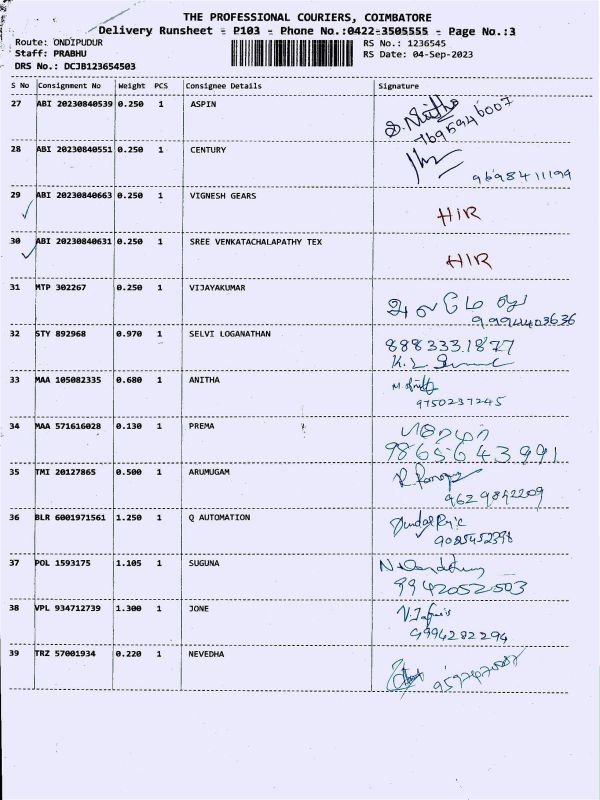 THE PROFESSIONAL COURIERS, COIMBATORE
Delivery Runsheet - P103 - Phone No.:0422-3505555 - Page No.:3
Route: ONDIPUDUR RS No.: 1236545
Staff: PRABHU RS Date: 04-Sep-2023
DRS No.: DCJB123654503
S No Consignment No Weight PCS Consignee Details Signature
27 ABI 20230840539 0.250 1 ASPIN
7695946007
28 ABI 20230840551 0.250 1 CENTURY
9698411194
29 ABI 20230840663 0.250 1 VIGNESH GEARS
HIR
30 ABI 20230840631 0.250 1 SREE VENKATACHALAPATHY TEX
HIR
31 MTP 302267 0.250 1 VIJAYAKUMAR
32 STY 892968 0.970 1 SELVI LOGANATHAN
888 333 1877
33 MAA 105082335 0.680 1 ANITHA
9750237245
34 MAA 571616028 0.130 1 PREMA
9865643991
35 TMI 20127865 0.500 1 ARUMUGAM
9629842209
36 BLR 6001971561 1.250 1 Q AUTOMATION
9085452398
37 POL 1593175 1.105 1 SUGUNA
9942052503
38 VPL 934712739 1.300 1 JONE
9994282294
39 TRZ 57001934 0.220 1 NEVEDHA